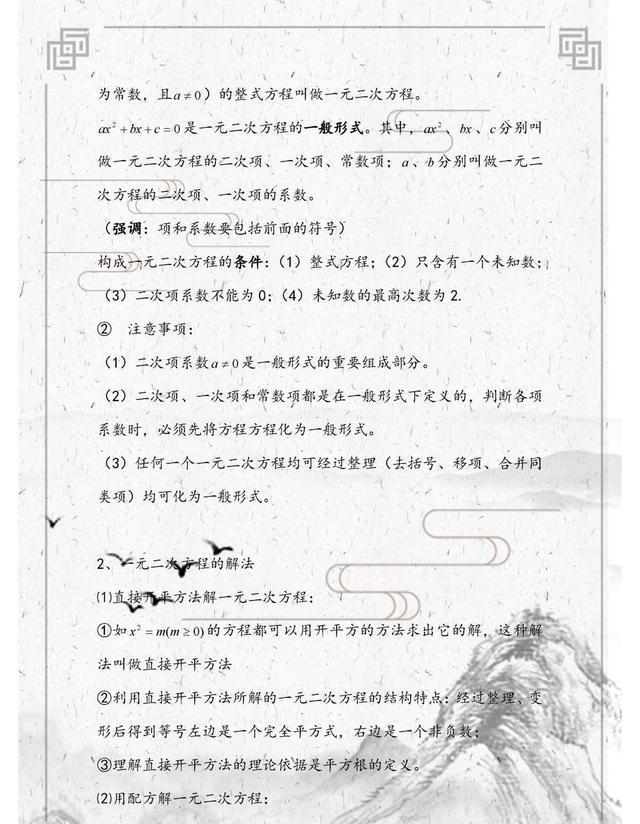 为常数，且a≠0）的整式方程叫做一元二次方程。
ax²+bx+c=0是一元二次方程的一般形式。其中，ax²、bx、c分别叫
做一元二次方程的二次项、一次项、常数项；a、b分别叫做一元二
次方程的二次项、一次项的系数。
（强调：项和系数要包括前面的符号）
构成一元二次方程的条件：（1）整式方程；（2）只含有一个未知数；
（3）二次项系数不能为0；（4）未知数的最高次数为2.
② 注意事项：
（1）二次项系数a≠0是一般形式的重要组成部分。
（2）二次项、一次项和常数项都是在一般形式下定义的，判断各项
系数时，必须先将方程方程化为一般形式。
（3）任何一个一元二次方程均可经过整理（去括号、移项、合并同
类项）均可化为一般形式。
2、一元二次方程的解法
⑴直接开平方法解一元二次方程：
①如x²=m(m≥0)的方程都可以用开平方的方法求出它的解，这种解
法叫做直接开平方法
②利用直接开平方法所解的一元二次方程的结构特点：经过整理、变
形后得到等号左边是一个完全平方式，右边是一个非负数；
③理解直接开平方法的理论依据是平方根的定义。
⑵用配方解一元二次方程：